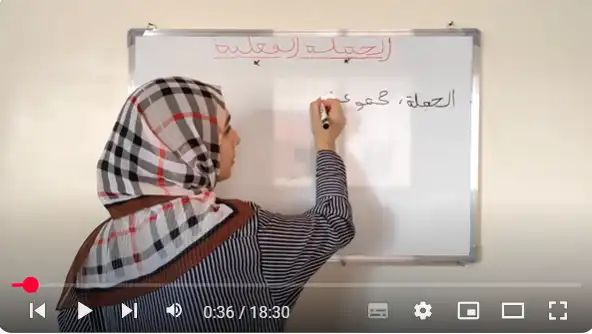 الجملة الفعلية
الجملة: مجموعة
0:36 / 18:30